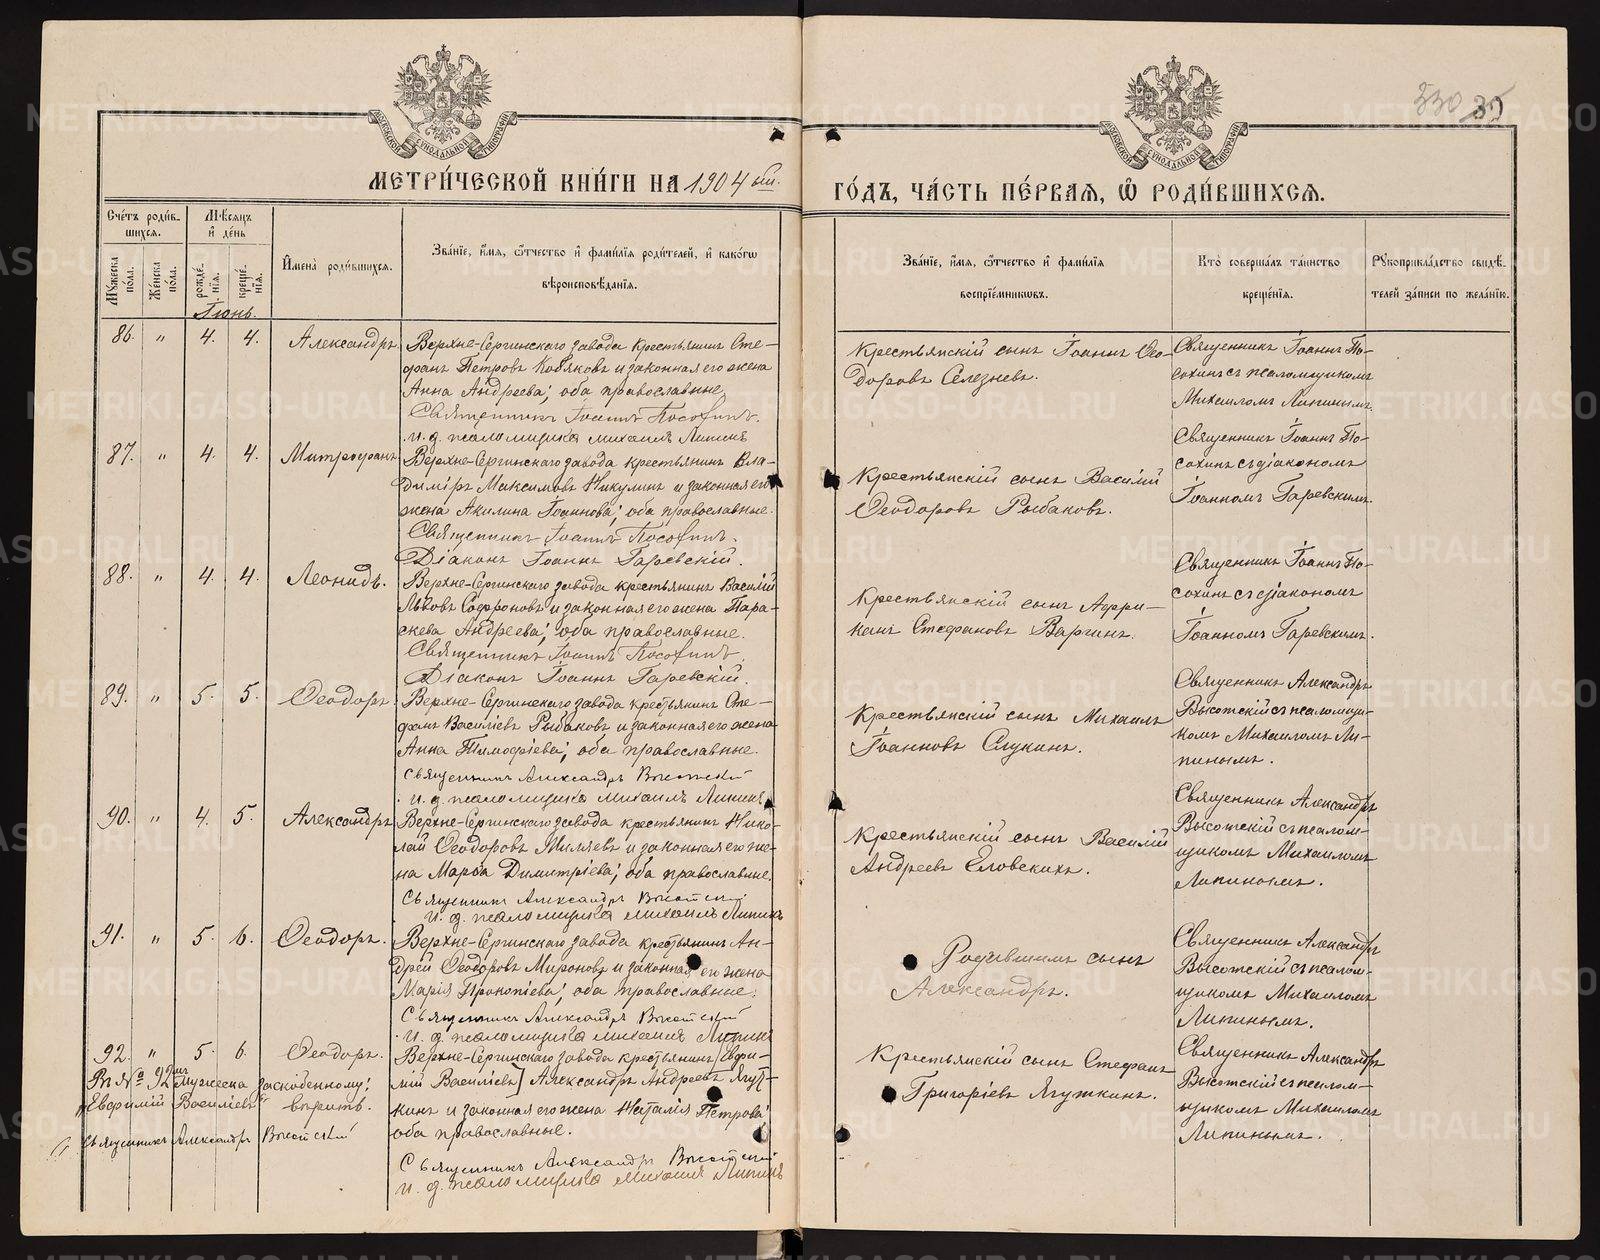 330 35
МОСКОВСКОЙ СѴНОДАЛЬНОЙ ТИПОГРАФІИ
МОСКОВСКОЙ СѴНОДАЛЬНОЙ ТИПОГРАФІИ
МЕТРИ́ЧЕСКОЙ КНИ́ГИ НА 1904 ый.
ГО́ДЪ, ЧА́СТЬ ПЕ́РВАЯ, Ѡ҆ РОДИ́ВШИХСЯ.
Сче́тъ роди́в-
шихся.
Мꙋ́жеска по́ла.
Же́нска по́ла.
Мѣ́сяцъ
и҆ де́нь
рожде́-
нїя.
креще́-
нїя.
И҆мена̀ роди́вшихся.
Зва́нїе, и҆́мя, ѻ҆́тчество и҆ фами́лїя роди́телей, и҆ како́гѡ
вѣроисповѣ́данїя.
Зва́нїе, и҆́мя, ѻ҆́тчество и҆ фами́лїя
воспрїе́мникѡвъ.
Кто̀ соверша́лъ та́инство
креще́нїя.
Рꙋкоприкла́дство свидѣ́-
телей за́писи по жела́нїю.
Іюнь.
86. " 4. 4. Александръ.
Верхне-Сергинскаго завода крестьянинъ Сте-
фанъ Петровъ Кобяковъ и законная его жена
Анна Андреева; оба православные.
Священникъ Іоаннъ Посохинъ.
и. д. псаломщика Михаилъ Липинъ
Крестьянскій сынъ Іоаннъ Ѳео-
доровъ Селезневъ.
Священникъ Іоаннъ По-
сохинъ съ псаломщикомъ
Михаиломъ Липинымъ.
87. " 4. 4. Митрофанъ.
Верхне-Сергинскаго завода крестьянинъ Вла-
диміръ Максимовъ Никулинъ и законная его
жена Акилина Іоаннова; оба православные.
Священникъ Іоаннъ Посохинъ.
Діаконъ Іоаннъ Гаревскій.
Крестьянскій сынъ Василій
Ѳеодоровъ Рыбаковъ.
Священникъ Іоаннъ По-
сохинъ съ діакономъ
Іоанномъ Гаревскимъ.
88. " 4. 4. Леонидъ.
Верхне-Сергинскаго завода крестьянинъ Василій
Львовъ Софроновъ и законная его жена Пара-
скева Андреева; оба православные.
Священникъ Іоаннъ Посохинъ.
Діаконъ Іоаннъ Гаревскій.
Крестьянскій сынъ Афри-
канъ Стефановъ Варгинъ.
Священникъ Іоаннъ По-
сохинъ съ діакономъ
Іоанномъ Гаревскимъ.
89. " 5. 5. Ѳеодоръ.
Верхне-Сергинскаго завода крестьянинъ Сте-
фанъ Василіевъ Рыбаковъ и законная его жена
Анна Тимофіева; оба православные.
Священникъ Александръ Высотскій
и. д. псаломщика Михаилъ Липинъ
Крестьянскій сынъ Михаилъ
Іоанновъ Слукинъ.
Священникъ Александръ
Высотскій съ псаломщи-
комъ Михаиломъ Ли-
пинымъ.
90. " 4. 5. Александръ
Верхне-Сергинскаго завода крестьянинъ Нико-
лай Ѳеодоровъ Миляевъ и законная его же-
на Марѳа Димитріева; оба православные.
Священникъ Александръ Высотскій
и. д. псаломщика Михаилъ Липинъ
Крестьянскій сынъ Василій
Андреевъ Еловскихъ.
Священникъ Александръ
Высотскій съ псалом-
щикомъ Михаиломъ
Липинымъ.
91. " 5. 6. Ѳеодоръ.
Верхне-Сергинскаго завода крестьянинъ Ан-
дрей Ѳеодоровъ Мироновъ и законная его жена
Марія Прокопіева; оба православные.
Священникъ Александръ Высотскій
и. д. псаломщика Михаилъ Липинъ
Родившимъ сынъ
Александръ.
Священникъ Александръ
Высотскій съ псалом-
щикомъ Михаиломъ
Липинымъ.
92. " 5. 6. Ѳеодоръ.
Верхне-Сергинскаго завода крестьянинъ [Евфи-
мій Василіевъ] Александръ Андреевъ Ягут-
кинъ и законная его жена Наталія Петрова;
оба православные.
Священникъ Александръ Высотскій
и. д. псаломщика Михаилъ Липинъ
Въ № 92мъ мужеска заскобенному:
"Евфимій Василіевъ" вѣрить.
Священникъ Александръ Высотскій
Крестьянскій сынъ Стефанъ
Григоріевъ Ягуткинъ.
Священникъ Александръ
Высотскій съ псалом-
щикомъ Михаиломъ
Липинымъ.
METRIKI.GASO-URAL.RU